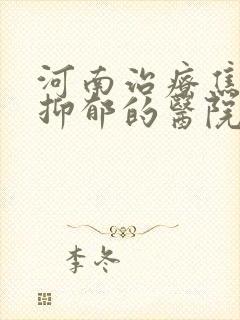 河南治疗焦
抑郁的医院
李冬